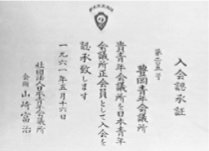 入会認承証
第二五号
豊岡青年会議所
貴青年会議所を日本青年
会議所正会員として入会を
認承致します
一九六一年五月十六日
社団法人日本青年会議所
会頭 山崎富治